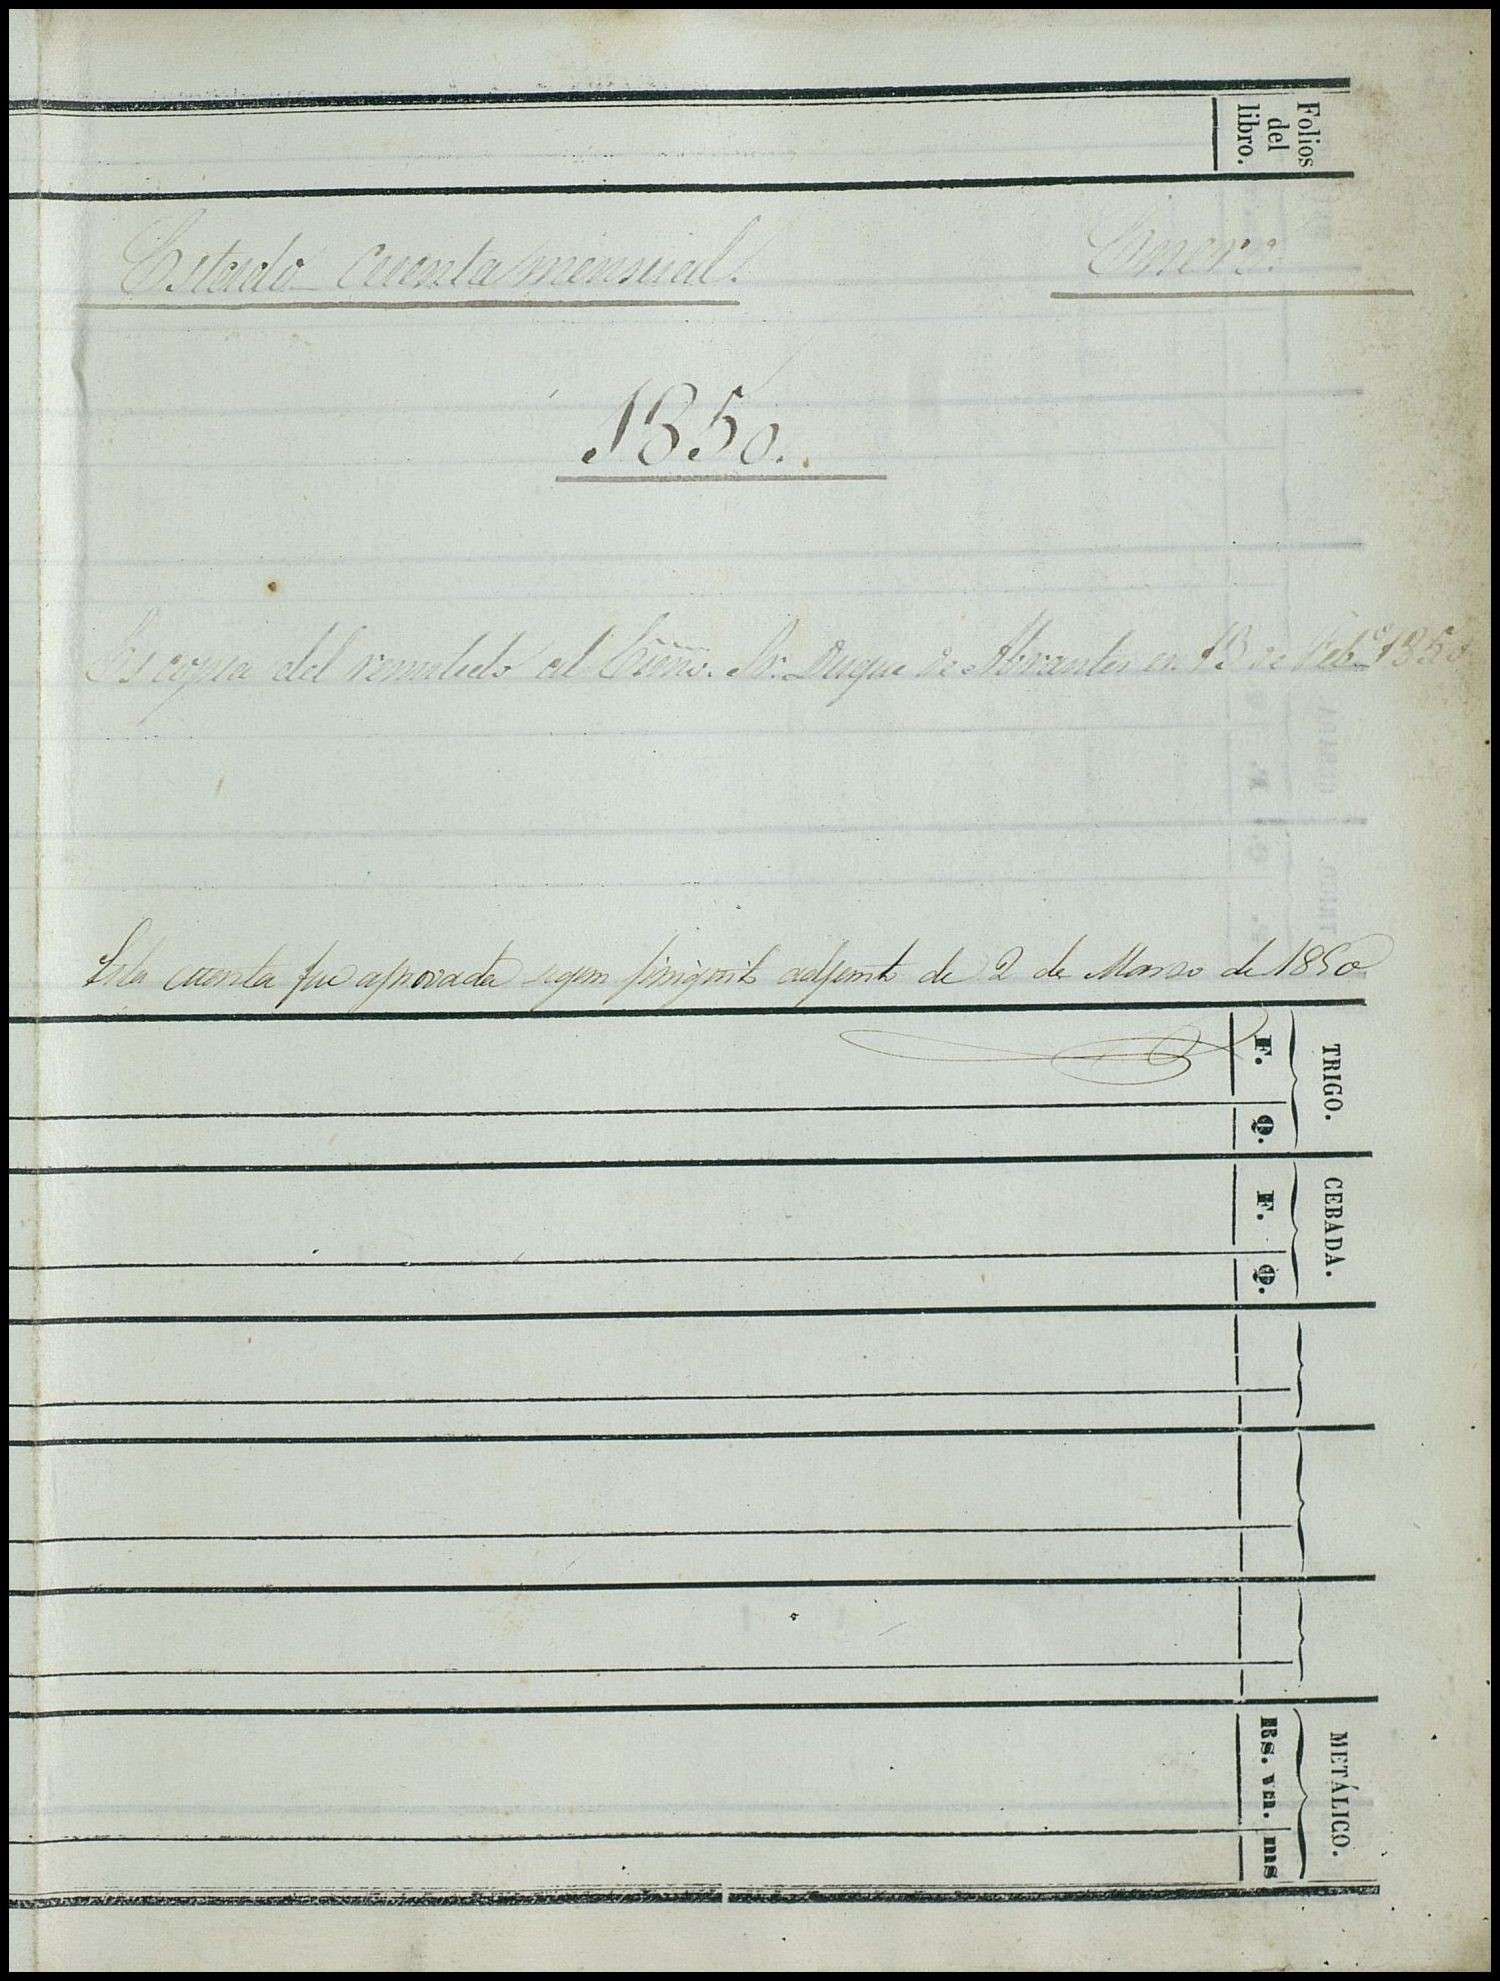 Folios
del
libro.
Estado cuenta mensual. Enero.
1850.
Es copia del remitido al Excmo. Sr. Duque de Abrantes en 13 de Feb.º 1850
Esta cuenta fue aprovada segun finiquito adjunto de 2 de Marzo de 1850
TRIGO.
F. Q.
CEBADA.
F. Q.
METÁLICO.
Rs. vn. ms